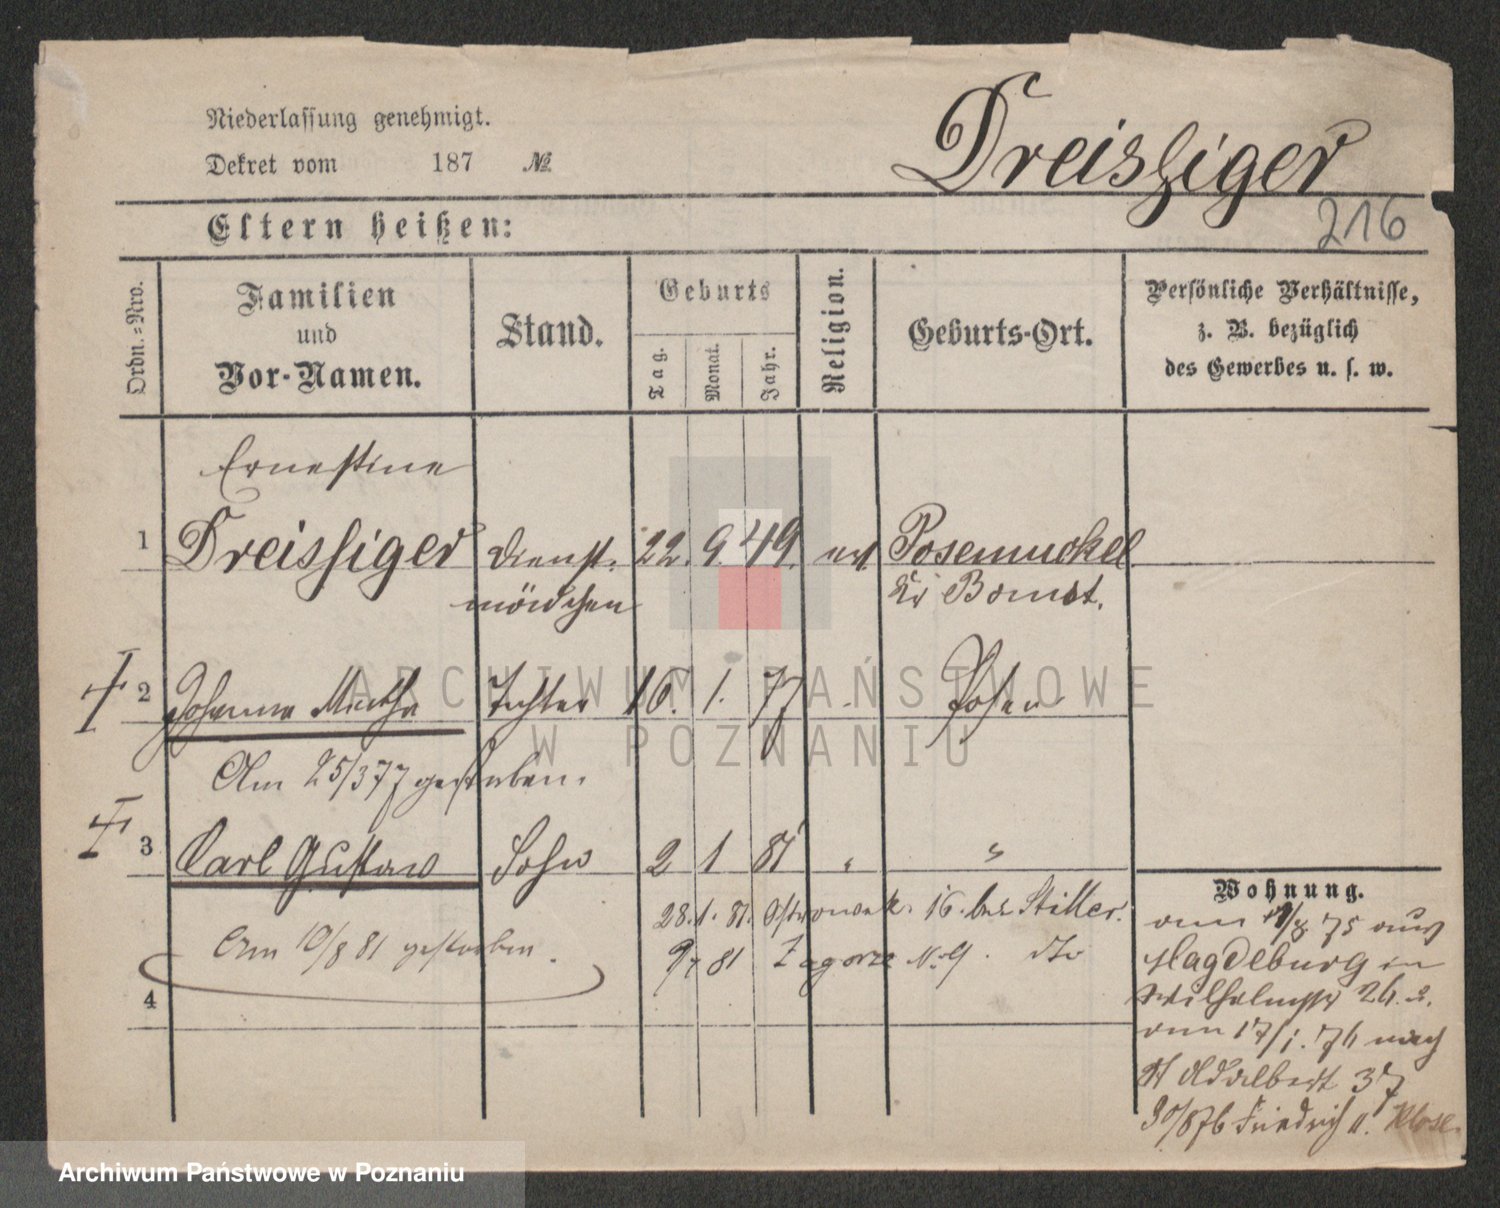 Niederlassung genehmigt.
Dekret vom 187 №
Dreisziger
216
Eltern heißen:
Ordn.=Nro.
Familien
und
Vor-Namen.
Stand.
Geburts
Tag.
Monat.
Jahr.
Religion.
Geburts-Ort.
Persönliche Verhältnisse,
z. B. bezüglich
des Gewerbes u. s. w.
Ernestine
1 Dreissiger Dienst- 22. 9. 49. ev. Posemuckel
mädchen Kr Bomst.
2 Johanna Martha Tochter 16. 1. 77 Posen
Am 25/3 77 gestorben.
3 Carl Gustav Sohn 2 1 81 " "
Am 10/8 81 gestorben.
28. 1. 81. Ostrowek. 16. bei Stiller.
9/7 81 Zagorze No 9. dto
4
Wohnung.
75 aus
Magdeburg in
Wilhelmsstr 26.
vom 17/1. 76 nach
St Adalbert 37
30/8 76 Friedrich Klose.
ARCHIWUM PAŃSTWOWE
W POZNANIU
Archiwum Państwowe w Poznaniu